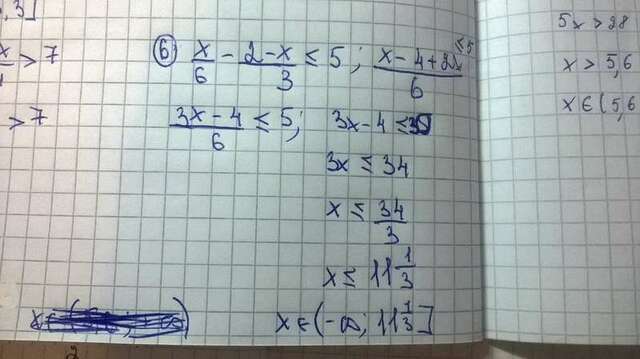 , 3]
x/4 > 7
> 7
⑥ x/6 - (2-x)/3 ≤ 5 ; (x-4+2x)/6 ≤ 5
(3x-4)/6 ≤ 5; 3x-4 ≤ 30
3x ≤ 34
x ≤ 34/3
x ≤ 11 1/3
x ∈ (-∞; 11 1/3]
5x > 28
x > 5,6
x ∈ (5,6